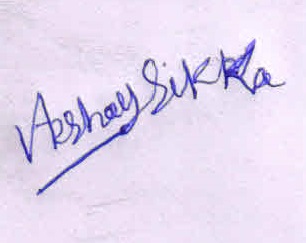 Akshay Sikka